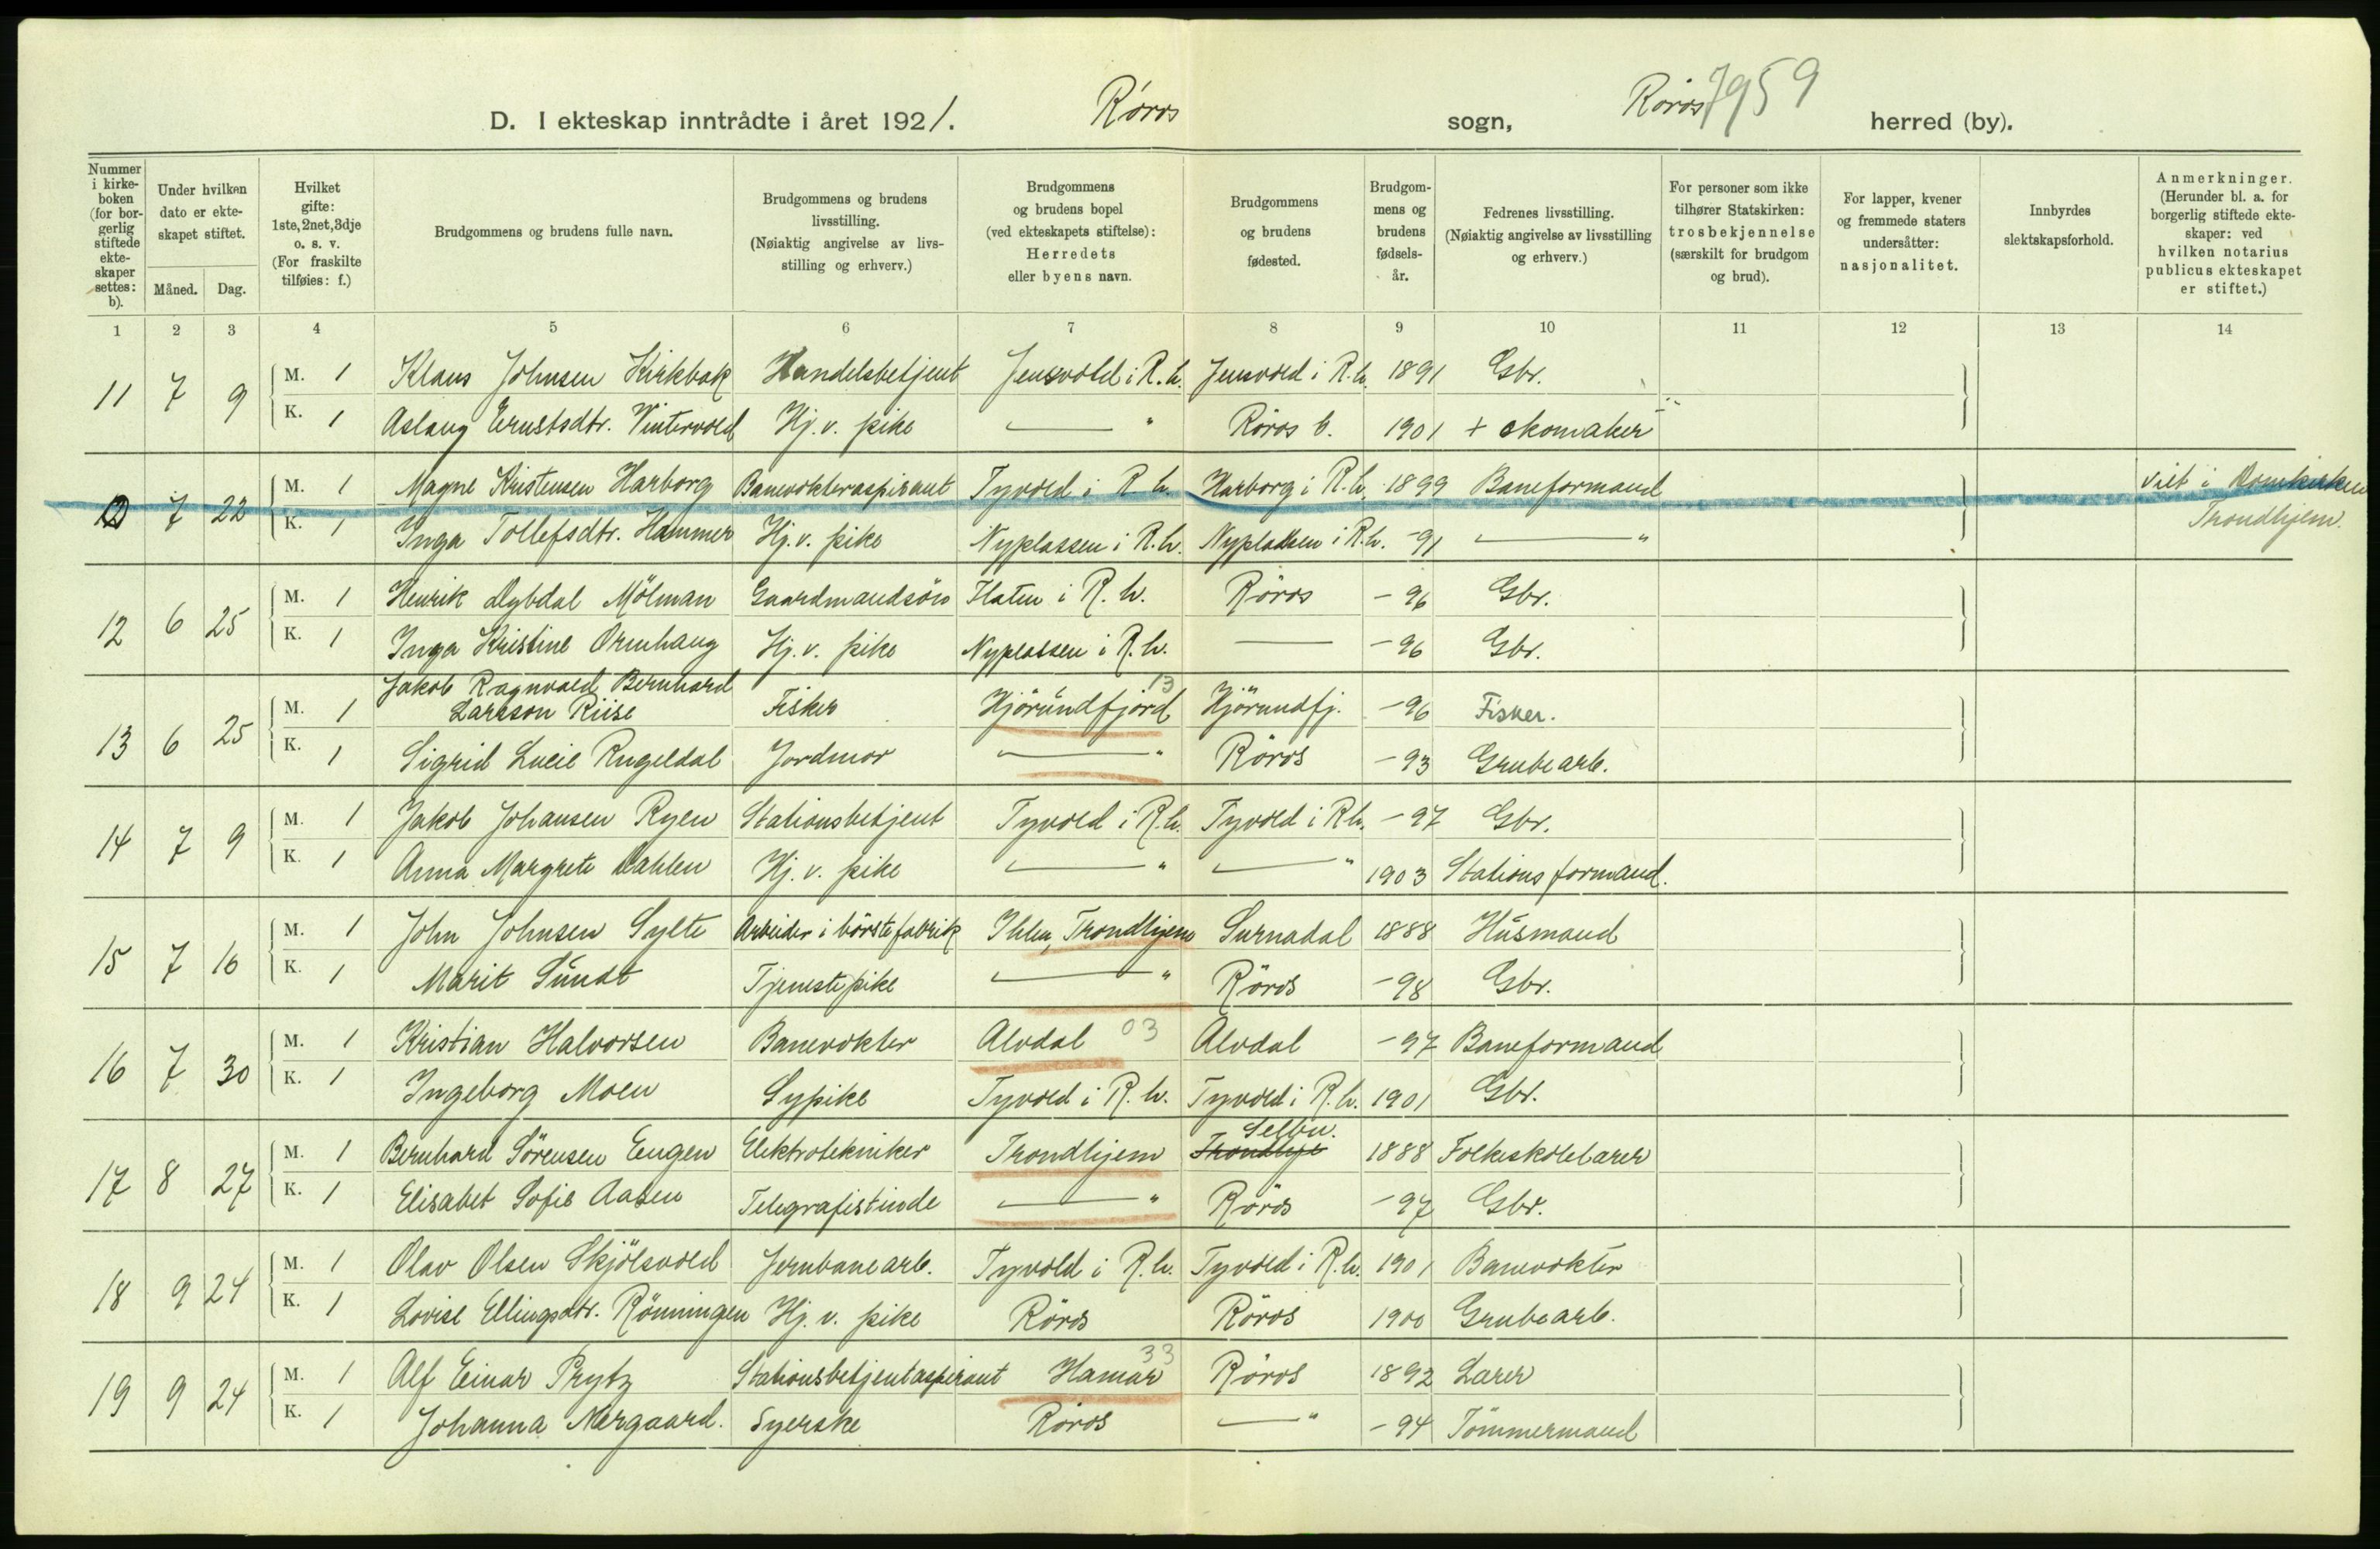 D. I ekteskap inntrådte i året 1921. Röros sogn, Röros herred (by). 7959
Nummer i kirkeboken (for borgerlig stiftede ekteskaper settes: b).
Under hvilken dato er ekteskapet stiftet.
Måned. Dag.
Hvilket gifte: 1ste, 2net, 3dje o. s. v. (For fraskilte tilføies: f.)
Brudgommens og brudens fulle navn.
Brudgommens og brudens livsstilling. (Nøiaktig angivelse av livsstilling og erhverv.)
Brudgommens og brudens bopel (ved ekteskapets stiftelse): Herredets eller byens navn.
Brudgommens og brudens fødested.
Brudgommens og brudens fødselsår.
Fedrenes livsstilling. (Nøiaktig angivelse av livsstilling og erhverv.)
For personer som ikke tilhører Statskirken: trosbekjennelse (særskilt for brudgom og brud).
For lapper, kvener og fremmede staters undersåtter: nasjonalitet.
Innbyrdes slektskapsforhold.
Anmerkninger. (Herunder bl. a. for borgerlig stiftede ekteskaper: ved hvilken notarius publicus ekteskapet er stiftet.)
1 2 3 4 5 6 7 8 9 10 11 12 13 14
11 7 9 M. 1 Klaus Johnsen Kirkbak Handelsbetjent Jensvold i R.h. Jensvold i R.h. 1891 Gbr.
K. 1 Aslaug Ernstsdtr. Vintervold Hj.v. pike — " Röros b. 1901 + skomaker
12 7 22 M. 1 Magne Kristensen Harborg Banevokteraspirant Tyvold i R.h. Harborg i R.h. 1899 Baneformand viet i Domkirken
K. 1 Inga Tollefsdtr. Hammer Hj.v. pike Nyplassen i R.h. Nyplassen i R.h. -91 — " Trondhjem.
12 6 25 M. 1 Henrik Dybdal Mölman Gaardmandsön Flaten i R.h. Röros -96 Gbr.
K. 1 Inga Kristine Ormhaug Hj.v. pike Nyplassen i R.h. — -96 Gbr.
13 6 25 M. 1 Jakob Ragnvald Bernhard
Larsson Riise Fisker Hjörundfjord 13 Hjörundfj. -96 Fisker.
K. 1 Sigrid Lucie Rugeldal Jordmor — " Röros -93 Grubearb.
14 7 9 M. 1 Jakob Johansen Ryen Stationsbetjent Tyvold i R.h. Tyvold i R.h. -97 Gbr.
K. 1 Anna Margrete Dahlen Hj.v. pike — " — " 1903 Stationsformand.
15 7 16 M. 1 John Johnsen Sylte Arbeider i börstefabrik Ihlen, Trondhjem Surnadal 1888 Husmand
K. 1 Marit Sundt Tjenestepike — " Röros -98 Gbr.
16 7 30 M. 1 Kristian Halvorsen Banevokter Alvdal 03 Alvdal -97 Baneformand
K. 1 Ingeborg Moen Sypike Tyvold i R.h. Tyvold i R.h. 1901 Gbr.
17 8 27 M. 1 Bernhard Sörensen Eugen Elektrotekniker Trondhjem Trondhje Selbu. 1888 Folkeskolelærer
K. 1 Elisabet Sofie Aasen Telegrafistinde — " Röros -97 Gbr.
18 9 24 M. 1 Olav Olsen Skjölsvold Jernbanearb. Tyvold i R.h. Tyvold i R.h. 1901 Banevokter
K. 1 Lovise Ellingsdtr. Rönningen Hj.v. pike Röros Röros 1900 Grubearb.
19 9 24 M. 1 Alf Einar Prytz Stationsbetjentaspirant Hamar 33 Röros 1892 Lærer
K. 1 Johanna Nergaard. Syerske Röros — " -94 Tömmermand